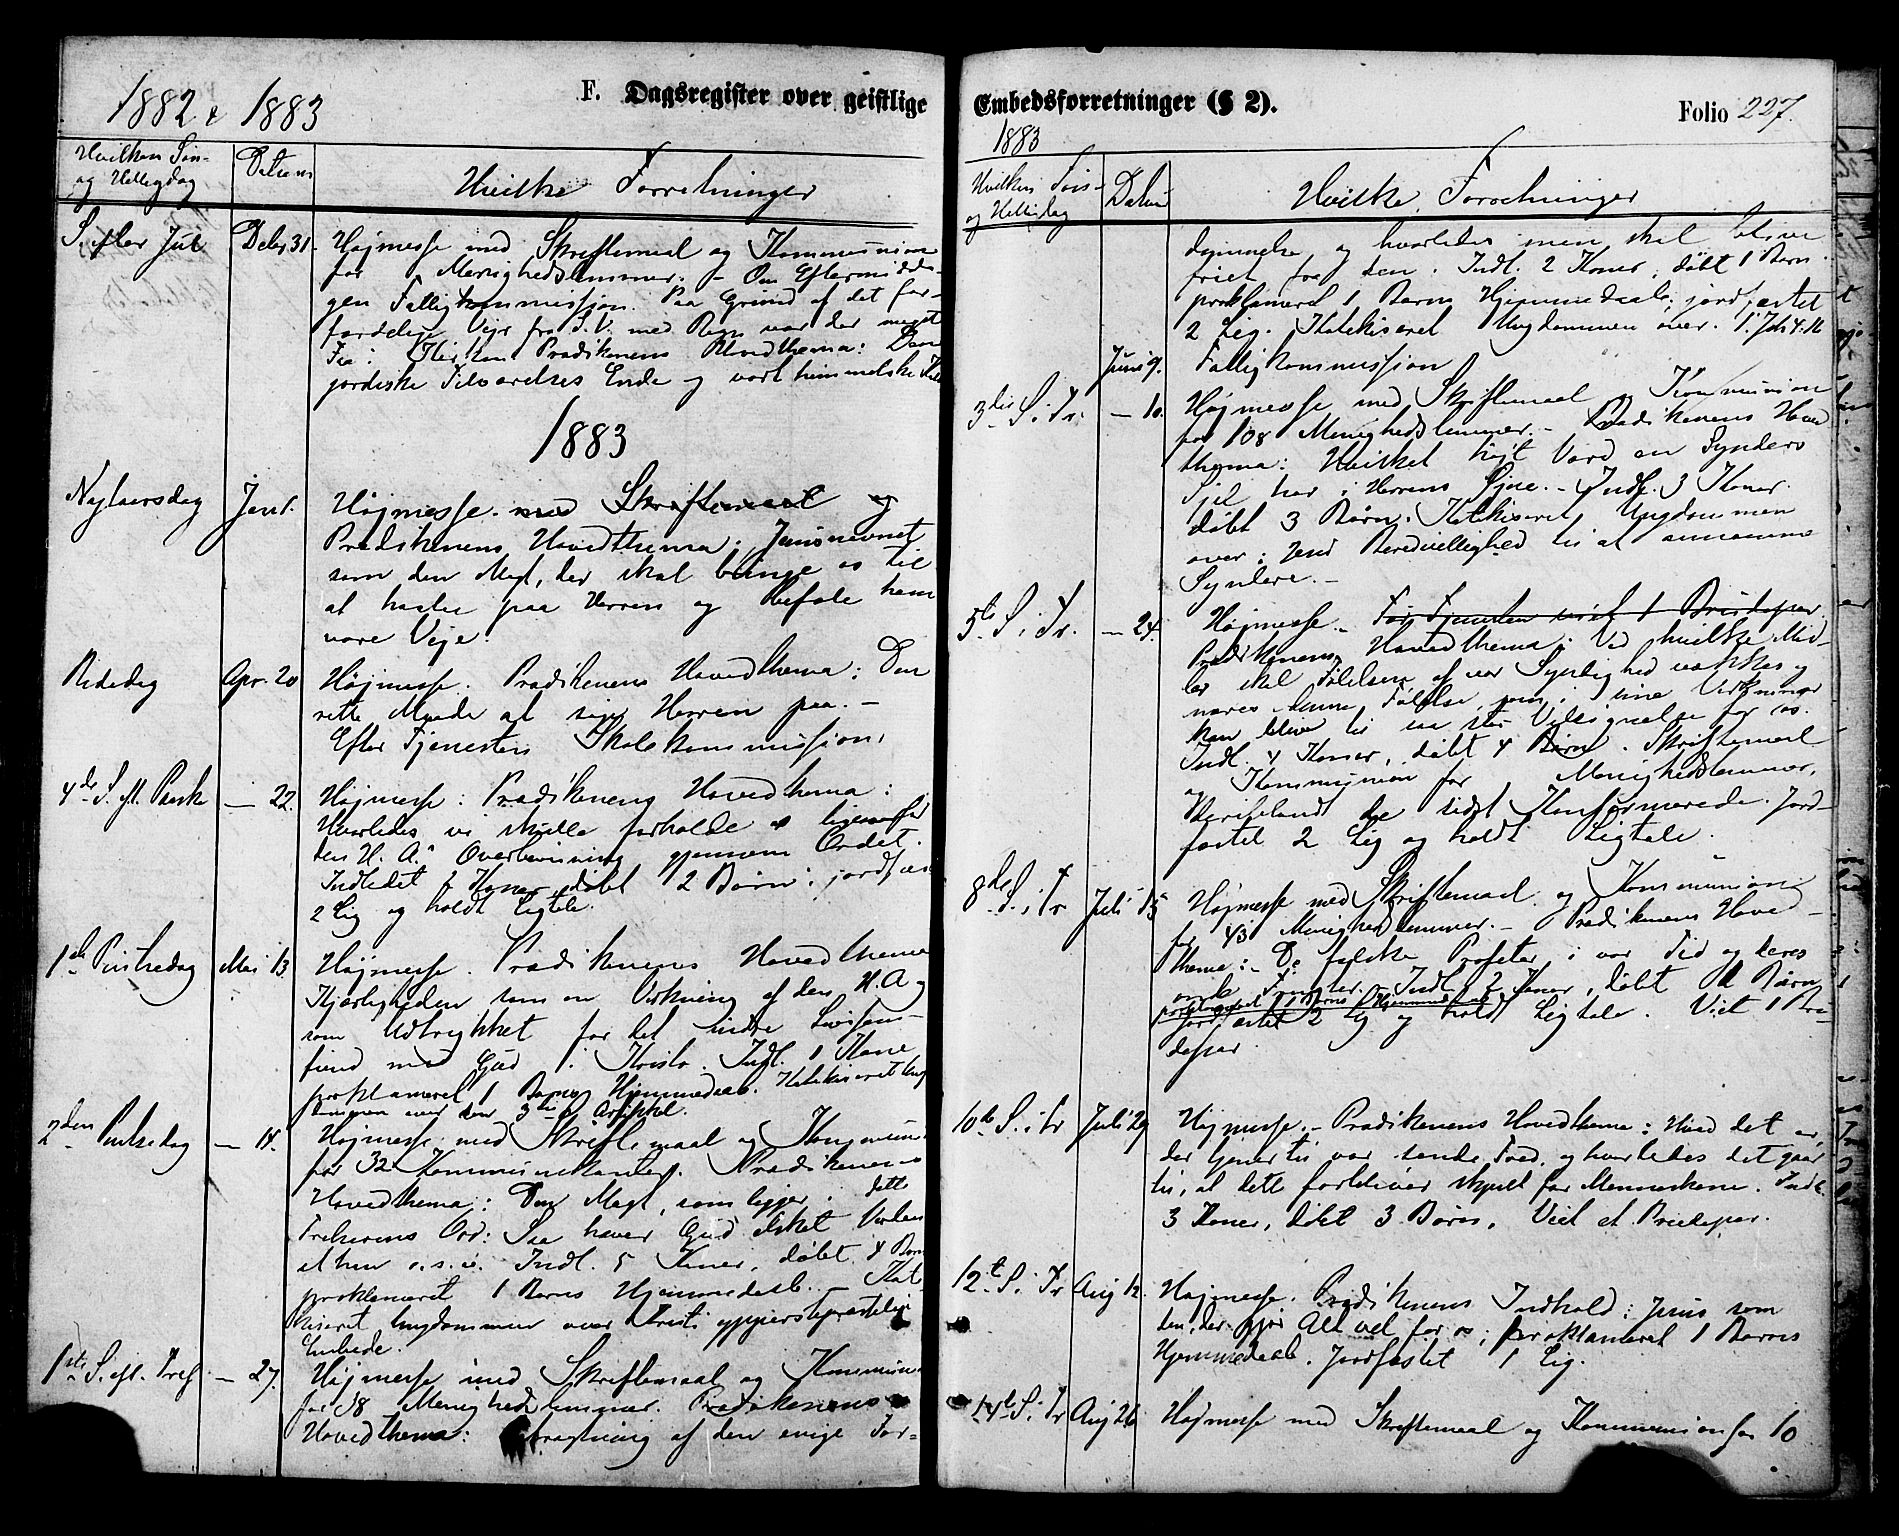 F. Dagsregister over geistlige
1882 & 1883
Hvilken Søn-
og Helligdag
Datum
Hvilke Forretninger
S. efter Jul
Decbr 31.
Højmesse med Skriftemaal og Kommunion
for Menighedslemmer. - Om Eftermidda-
gen Fattigkommission. Paa Grund af det for-
færdelige Vejr fra S.V. med Regn var der meget
Faa i Kirken Prædikenens Hovedthema: Den
jordiske Tilværelses Ende og vort himmelske
1883
Nytaarsdag
Jan 1.
Højmesse. med Skriftemaal og
Prædikenens Hovedthema: Jesusnavnet
som den Magt, der skal bringe os til
at haabe paa Herren og befale ham
vore Veje.
Bededag
Apr. 20
Højmesse. Prædikenens Hovedthema: Den
rette Maade at søge Herren paa. -
Efter Tjenesten Skolekommission.
4de S. eft. Paaske
- 22.
Højmesse: Prædikenens Hovedthema:
Hvorledes vi skulle forholde os ligeoverfor
den H. A.s Overbevisning gjennem Ordet.
Indledet Koner, døbt 2 Børn; jordfæs
2 Lig og holdt Ligtale.
1ste Pintsedag
Mai 13.
Højmesse. Prædikenens Hovedthema
Kjærligheden som en Virkning af den H. A og
som Udtrykket for det indre Livssam-
fund med Gud i Kristo. Indl. 1 Kone
proklameret 1 Barns Hjemmedaab. Katekiseret Ung
dommen over den 3die Artikkel.
2den Pintsedag
- 14.
Højmesse med Skriftemaal og Kommun
for 32 Kommunikanter. Prædikenens
Hovedthema: Den Magt, som ligger i dette
Frelserens Ord: Saa haver Gud elsket Verden
at han o.s.v. Indl. 5 Koner, døbt 4 Børn
proklameret 1 Barns Hjemmedaab. - Kate
kiseret Ungdommen over Kristi ypperstepræstelige
Embede.
1ste S. eft. Tref.
- 27.
Højmesse med Skriftemaal og Kommun
for 38 Menighedslemmer. Prædikenens
Hovedthema: Betragtning af den evige For-
Embedsforretninger (§ 2).
Folio 227.
1883
Hvilken Søn-
og Helligdag
Datum
Hvilke Forretninger
dømmelse og hvorledes men skal blive
friet fra den. Indl. 2 Koner, døbt 1 Barn.
proklameret 1 Barns Hjemmedaab; jordfæstet
2 Lig. Katekiseret Ungdommen over. 1. Joh 4.16
Juni 9.
Fattigkommission
3die S. i Tr.
- 10.
Højmesse med Skriftemaal og Kommunion
for 108 Menighedslemmer. - Prædikenens Hoved
thema: Hvilket højt Værd en Synders
Sjæl har i Herrens Øjne. - Indl. 3 Koner.
døbt 3 Børn. Katekiseret Ungdommen
over: Jesu Beredvillighed til at annamme
Syndere. -
5te S. i Tr.
- 24.
Højmesse. - Før Tjenesten viet 1 Brudepar
Prædikenens Hovedthema: Ved hvilke Mid-
ler skal Følelsen af vor Syndighed vækkes og
næres denne Følelse, som i sine Virkninger
kan blive til saa stor Velsignelse for os.
Indl. 4 Koner, døbt 4 Børn. Skriftemaal
og Kommunion for Menighedslemmer,
deriblandt de sidst Konfirmerede. Jord-
fæstet 2 Lig og holdt Ligtale.
8de S. i Tr
Juli 15
Højmesse med Skriftemaal og Kommunion
for 43 Menighedslemmer. - Prædikenens Hoved-
thema: - De falske Profeter i vor Tid og deres
onde Frugter. - Indl. 2 Koner, døbt 2 Børn
proklameret 1 Barns Hjemmedaab
Jordfæstet 2 Lig og holdt Ligtale. Viet 1 Bru-
depar.
10de S. i Tr
Juli 29
Højmesse. - Prædikenens Hovedthema: Hvad det er,
der tjener til vor sande Fred, og hvorledes det gaar
til, at dette forbliver skjult for Menneskene. Indl.
3 Koner, døbt 3 Børn, Viet et Brudepar.
12te S. i Tr
Aug 12.
Højmesse. Prædikenens Indhold: Jesus som
den, der gjør Alt vel for os; proklameret 1 Barns
Hjemmedaab. Jordfæstet 1 Lig.
14de S. i Tr
Aug 26
Højmesse med Skriftemaal og Kommunion for 10